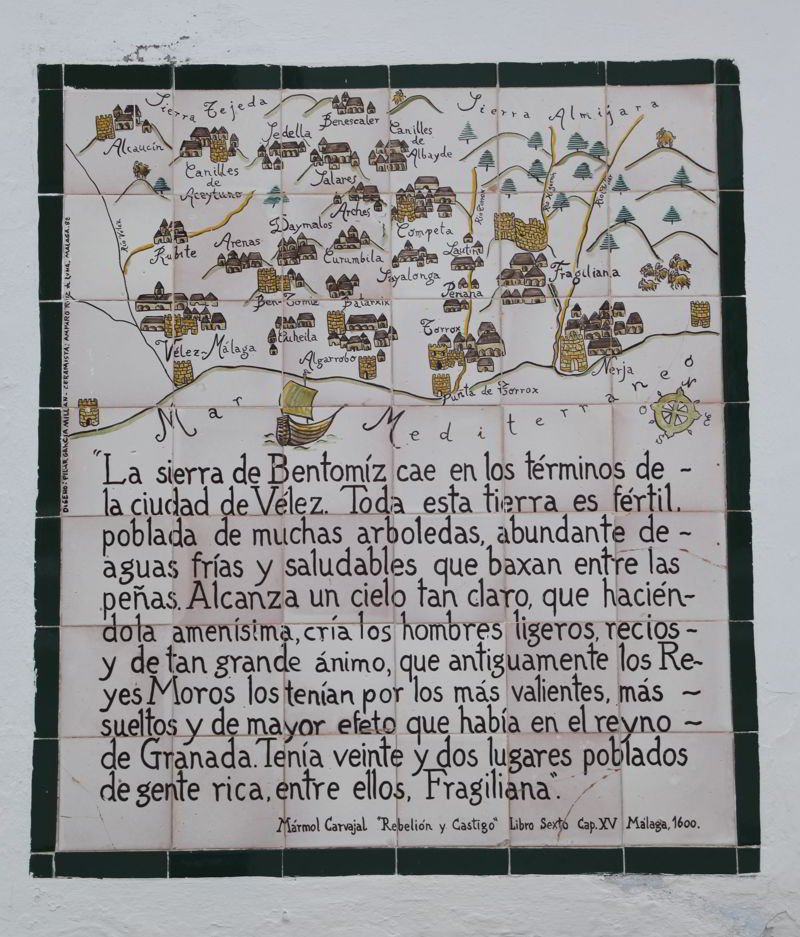 Sierra Tejeda
Sierra Almijara
Benescaler
Alcaucín
Sedella
Canilles
de
Albayde
Canilles
de
Aceytuno
Salares
Arches
Río Velez
Daymalos
Competa
Rubite
Arenas
Curumbila
Lautin
Sayalonga
Fragiliana
Ben-Tomiz
Batarxix
Periana
Vélez-Málaga
Cuheila
Algarrobo
Torrox
Nerja
Punta de Torrox
Mar Mediterraneo
N
O
E
S
DISEÑO: PILAR GARCIA MILLAN - CERAMISTA: AMPARO RUIZ de LUNA, MALAGA.82
"La sierra de Bentomíz cae en los términos de -
la ciudad de Vélez. Toda esta tierra es fértil,
poblada de muchas arboledas, abundante de -
aguas frías y saludables que baxan entre las
peñas. Alcanza un cielo tan claro, que hacién-
dola amenísima, cría los hombres ligeros, recios -
y de tan grande ánimo, que antiguamente los Re-
yes Moros los tenían por los más valientes, más -
sueltos y de mayor efeto que había en el reyno -
de Granada. Tenía veinte y dos lugares poblados
de gente rica, entre ellos, Fragiliana".
Mármol Carvajal "Rebelión y Castigo" Libro Sexto Cap. XV Málaga, 1600.